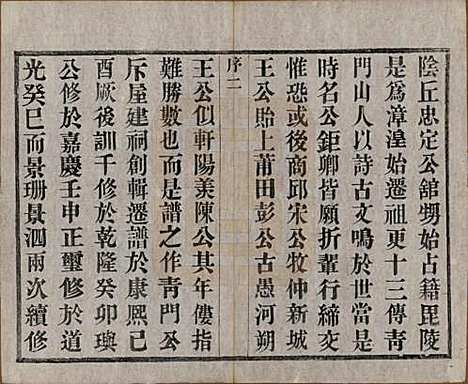 陰丘忠定公舘甥始占籍毘陵
是爲漳湟始遷祖更十三傳青
門山人以詩古文鳴於世當是
時名公鉅卿皆願折輩行締交
惟恐或後商邱宋公牧仲新城
王公貽上莆田彭公古愚河朔
序二
王公似軒陽羨陳公其年僂指
難勝數也而是譜之作靑門公
斥屋建祠創輯遷譜於康熙己
酉厥後訓千修於乾隆癸卯璵
公修於嘉慶壬申正璽修於道
光癸巳而景珊景泗兩次續修